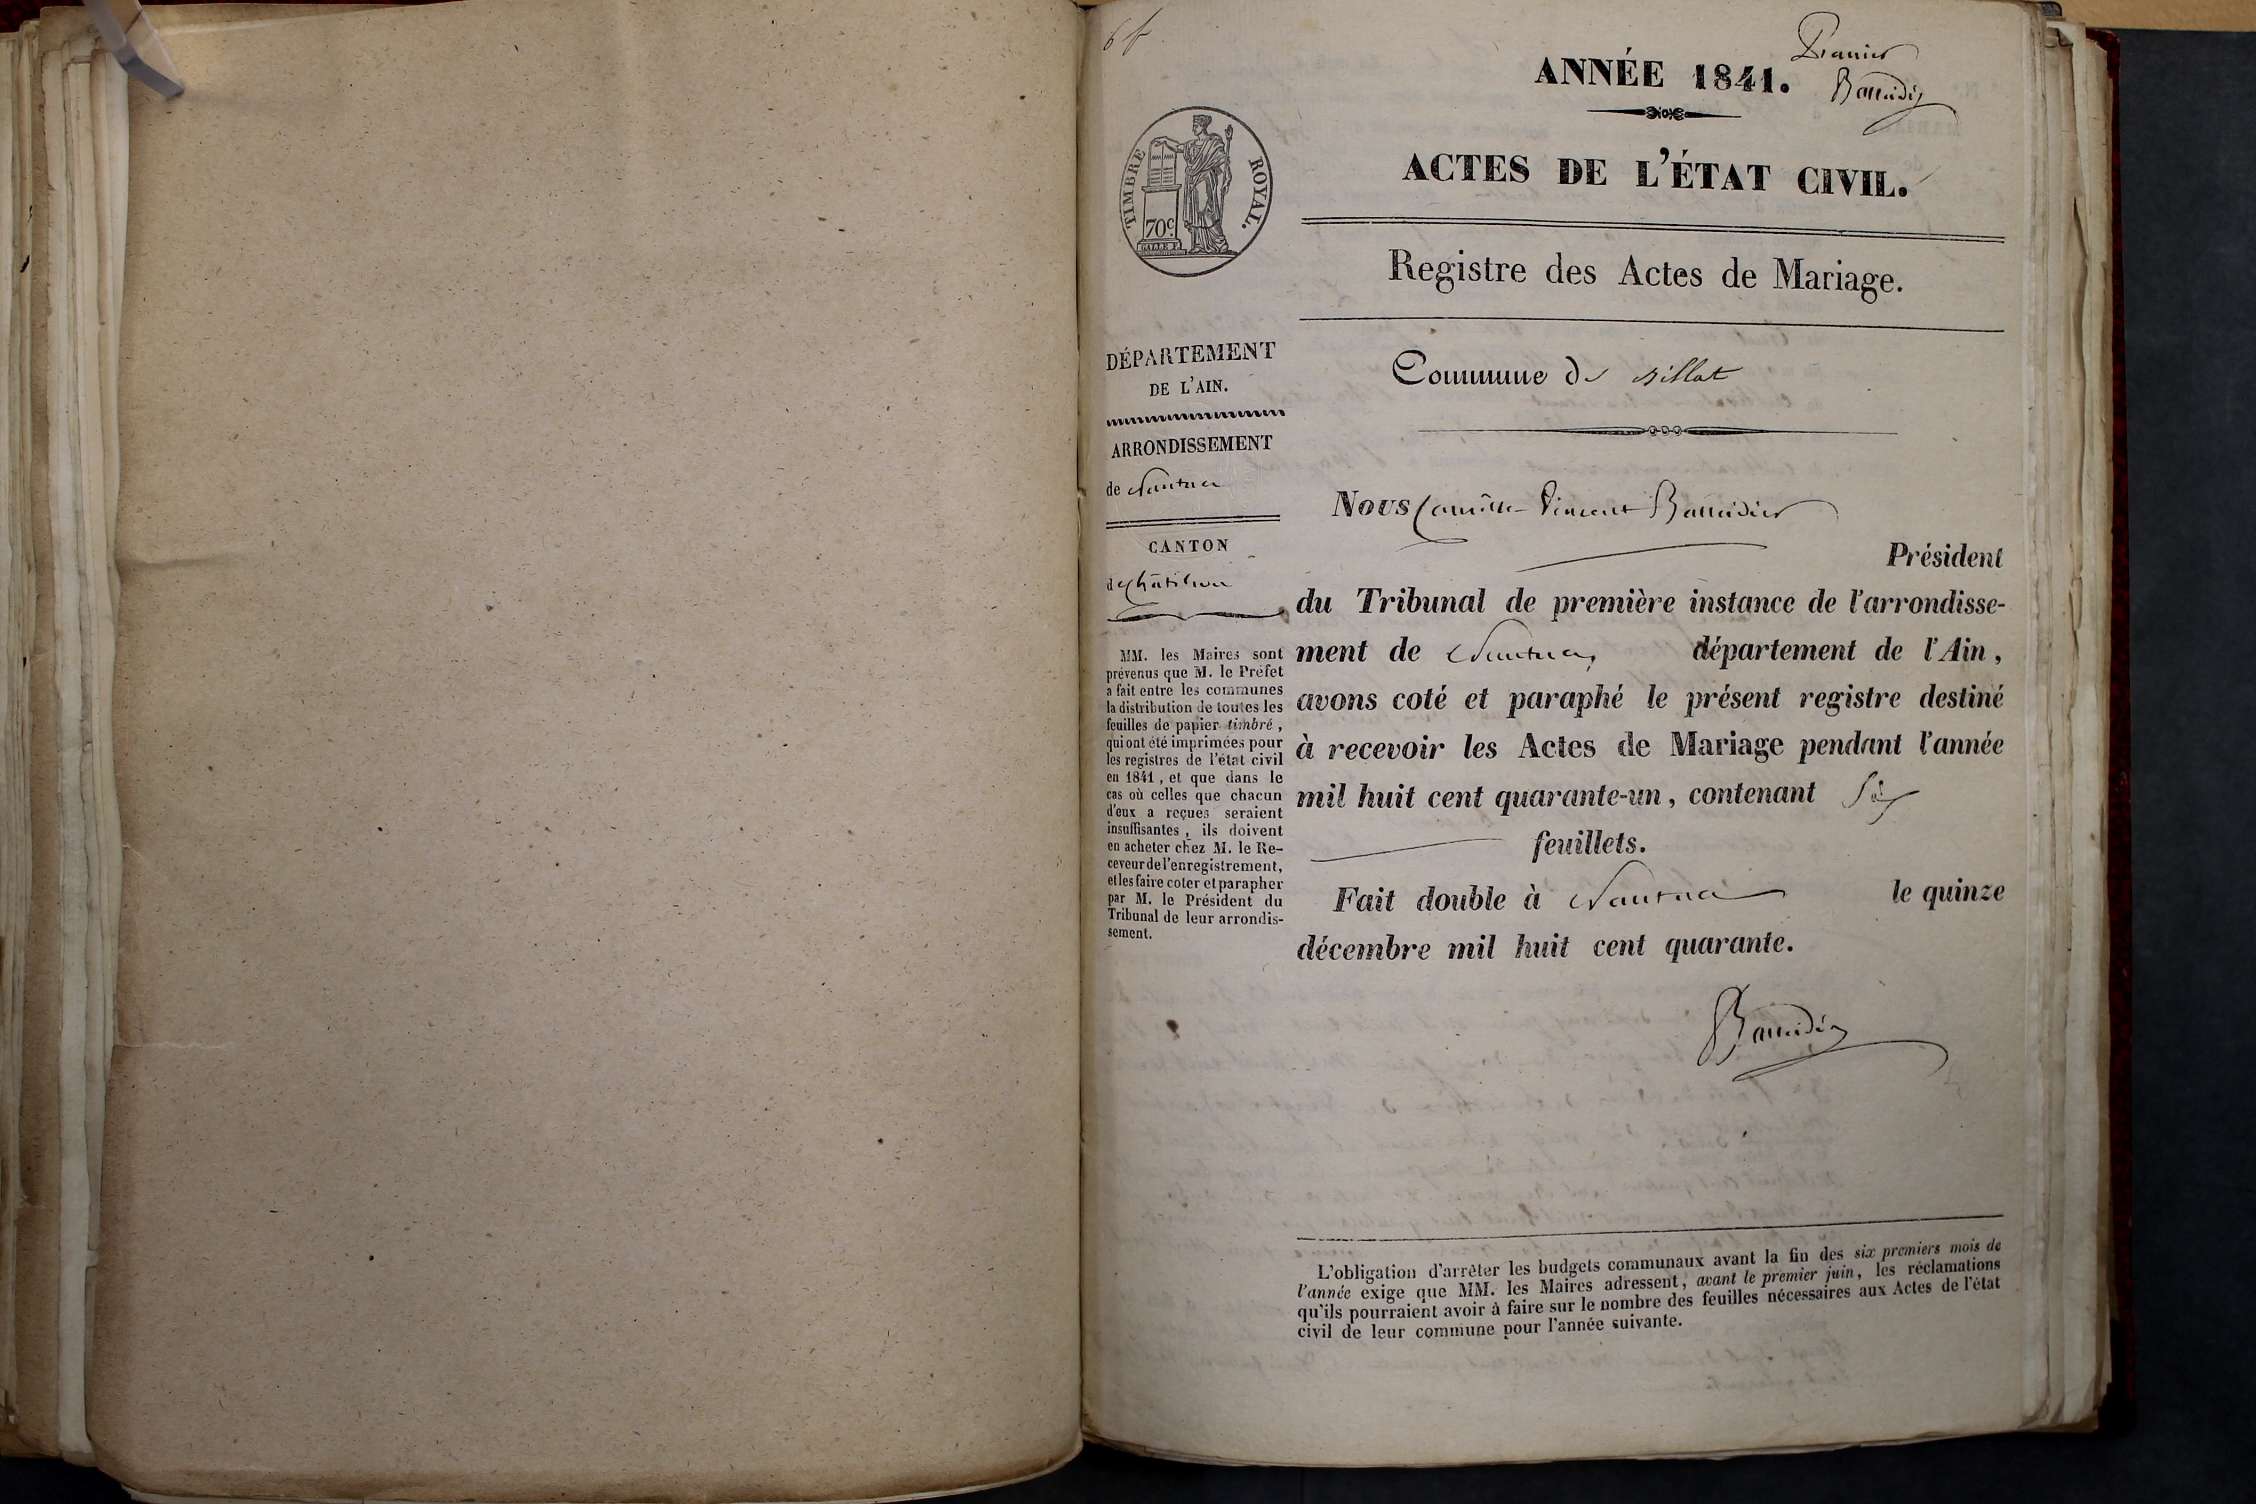 6 f
Premier
ANNÉE 1841.
ACTES DE L'ÉTAT CIVIL.
TIMBRE ROYAL.
70c
Registre des Actes de Mariage.
DÉPARTEMENT
DE L'AIN.
ARRONDISSEMENT
de Nantua
CANTON
de Châtillon
MM. les Maires sont
prévenus que M. le Préfet
a fait entre les communes
la distribution de toutes les
feuilles de papier timbré,
qui ont été imprimées pour
les registres de l'état civil
en 1841, et que dans le
cas où celles que chacun
d'eux a reçues seraient
insuffisantes, ils doivent
en acheter chez M. le Re-
ceveur de l'enregistrement,
et les faire coter et parapher
par M. le Président du
Tribunal de leur arrondis-
sement.
Commune de Billat
Nous Camille Vincent
Président
du Tribunal de première instance de l'arrondisse-
ment de Nantua, département de l'Ain,
avons coté et paraphé le présent registre destiné
à recevoir les Actes de Mariage pendant l'année
mil huit cent quarante-un, contenant Six
feuillets.
Fait double à Nantua le quinze
décembre mil huit cent quarante.
L'obligation d'arrêter les budgets communaux avant la fin des six premiers mois de
l'année exige que MM. les Maires adressent, avant le premier juin, les réclamations
qu'ils pourraient avoir à faire sur le nombre des feuilles nécessaires aux Actes de l'état
civil de leur commune pour l'année suivante.